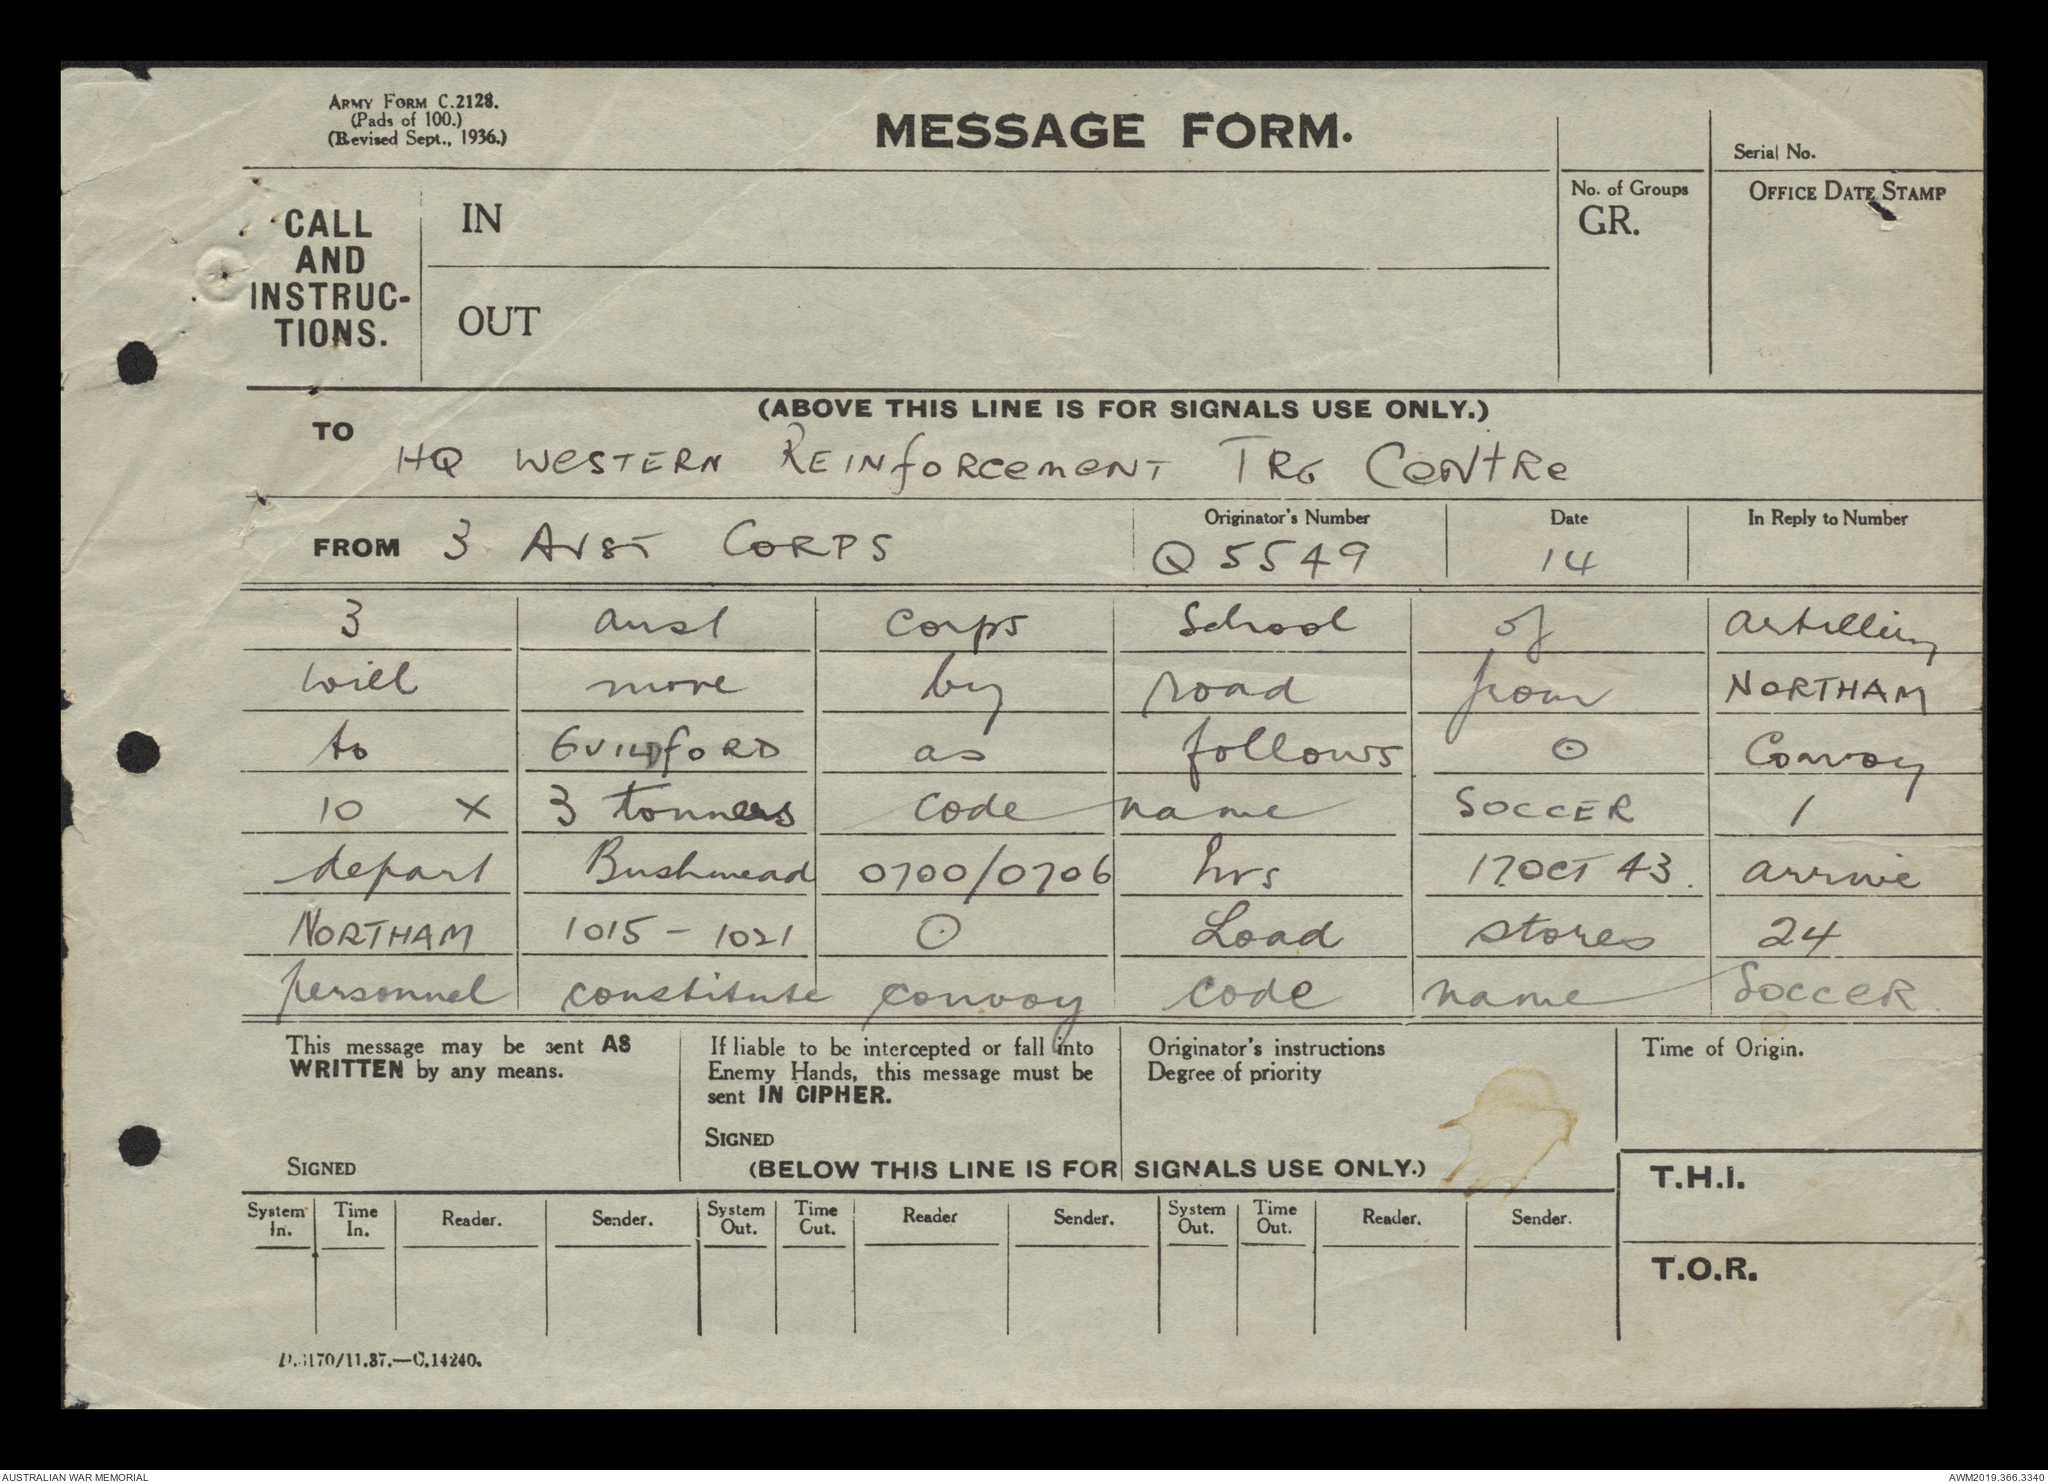 ARMY FORM C.2128.
(Pads of 100.)
(Revised Sept., 1936.)
MESSAGE FORM.
Serial No.
CALL AND INSTRUC-TIONS.
IN
OUT
No. of Groups
GR.
OFFICE DATE STAMP
(ABOVE THIS LINE IS FOR SIGNALS USE ONLY.)
TO HQ WESTERN REINFORCEMENT TRG CENTRE
FROM 3 AUST CORPS
Originator's Number Q 5549
Date 14
In Reply to Number
3 aust corps School of artillery
will move by road from NORTHAM
to GUILDFORD as follows ⊙ Convoy
10 X 3 tonners code name SOCCER 1
depart Bushmead 0700/0706 hrs 17 OCT 43. arrive
NORTHAM 1015 - 1021 ⊙ Load stores 24
personnel constitute convoy code name SOCCER
This message may be sent AS
WRITTEN by any means.
SIGNED
If liable to be intercepted or fall into
Enemy Hands, this message must be
sent IN CIPHER.
SIGNED
Originator's instructions
Degree of priority
Time of Origin.
(BELOW THIS LINE IS FOR SIGNALS USE ONLY.)
T.H.I.
T.O.R.
System In. Time In. Reader. Sender. System Out. Time Out. Reader Sender. System Out. Time Out. Reader. Sender.
/11.37.—C.14240.
AUSTRALIAN WAR MEMORIAL
AWM2019.366.3340